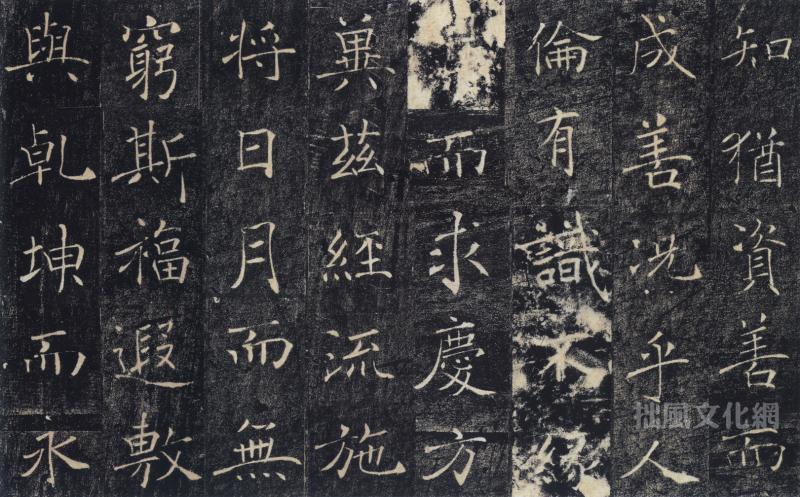 知猶資善而
成善況乎人
倫有識不緣
而求慶方
兾茲經流施
将日月而無
窮斯福遐敷
與乹坤而永
拙風文化網